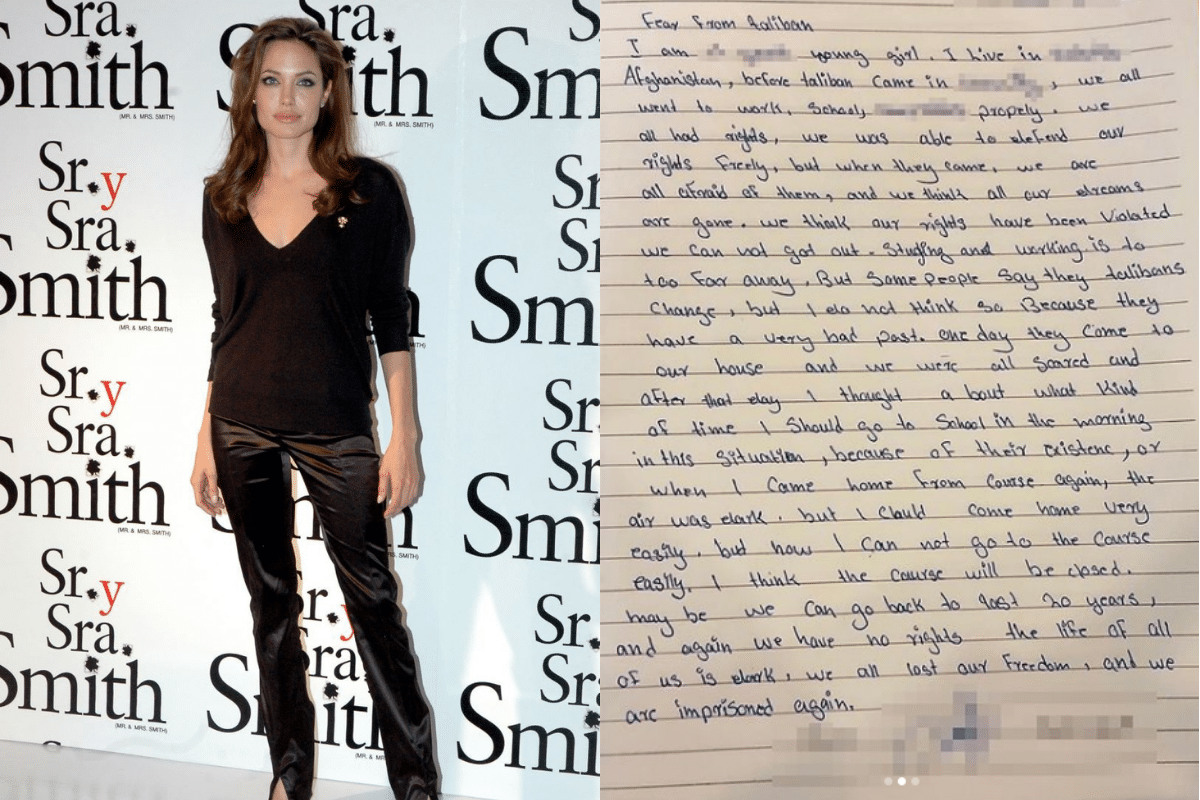 Sra.
Smith
(MR. & MRS. SMITH)
Sr. y
Sra.
Smith
(MR. & MRS. SMITH)
Sr. y
Sra.
Smith
(MR. & MRS. SMITH)
Sr. y
Sra.
Smith
(MR. & MRS. SMITH)
Fear From taliban
I am young girl. I Live in
Afghanistan, before taliban came in , we all
went to work, School, propely. we
all had rights, we was able to defend our
rights Freely, but when they came, we are
all afraid of them, and we think all our dreams
are gone. we think our rights have been Violated
we can not got out. Studfing and working is to
too far away. But Some people say they talibans
Change, but I do not think so Because they
have a very bad past. one day they Come to
our house and we were all Scared and
after that day I thought a bout what Kind
of time I Should go to School in the morning
in this Situation, because of their existenc, or
when I Came home From course again, the
air was dark. but I Could come home very
easily. but now I Can not go to the Course
easily. I think the course will be closed.
may be we Can go back to last 20 years,
and again we have no rights the life of all
of us is dark, we all lost our Freedom, and we
are imprisoned again.